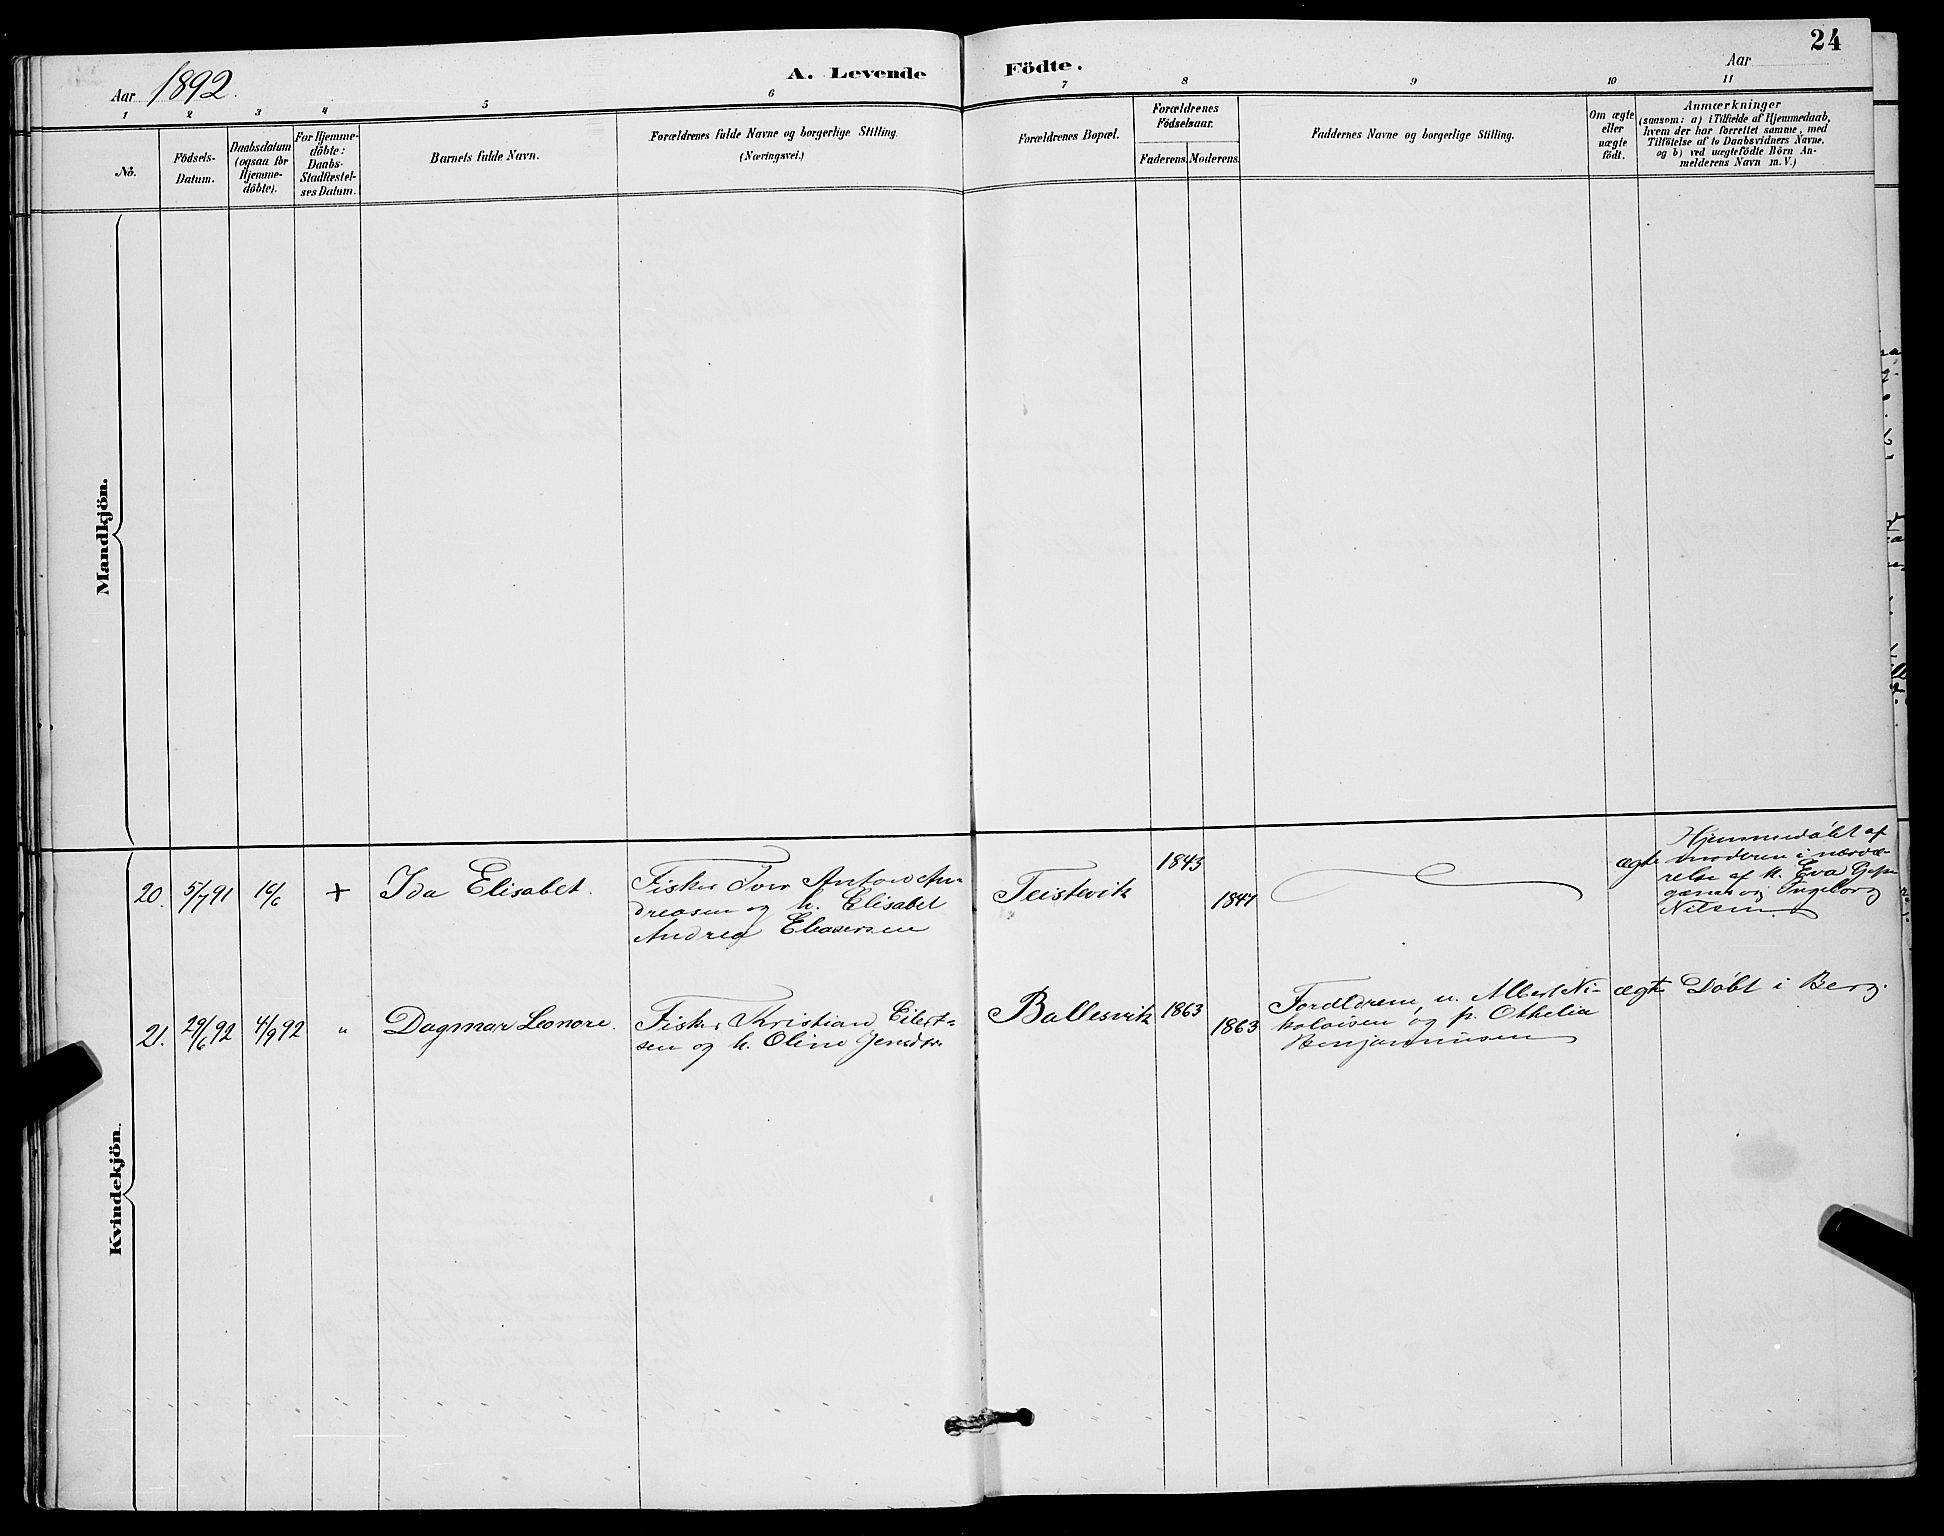 24
Aar 1892.
A. Levende Födte.
Aar
1 2 3 4 5 6 7 8 9 10 11
No.
Födsels-
Datum.
Daabsdatum
(ogsaa for
Hjemme-
döbte).
For Hjemme-
döbte:
Daabs-
Stadfæstel-
ses Datum.
Barnets fulde Navn.
Forældrenes fulde Navne og borgerlige Stilling.
(Næringsvei.)
Forældrenes Bopæl.
Forældrenes
Födselsaar.
Faderens. Moderens.
Faddernes Navne og borgerlige Stilling.
Om ægte
eller
uægte
födt.
Anmærkninger
(saasom: a) i Tilfælde af Hjemmedaab,
hvem der har forrettet samme, med
Tilföielse af to Daabsvidners Navne,
og b) ved uægtefödte Börn An-
melderens Navn m. V.)
Mandkjön.
Kvindekjön.
20.
5/7 91
16/6
+
Ida Elisabet.
Fisker Iver Anton An-
dreasen og h. Elisabet
Andrea Eliasersen
Teistevik
1843
1847
ægte
Hjemmedöbt af
moderen i nærvæ-
relse af k. Eva
og Ingeborg
Nilsen.
21.
29/6 92
4/9 92
"
Dagmar Leonore.
Fisker Kristian Eilert-
sen og h. Oline Jensdtr.
Ballesvik
1863
1863
Forældrene, u. Albert Ni-
kolaisen og p. Othelia
Benjaminsen
ægte
Döbt i Berg.